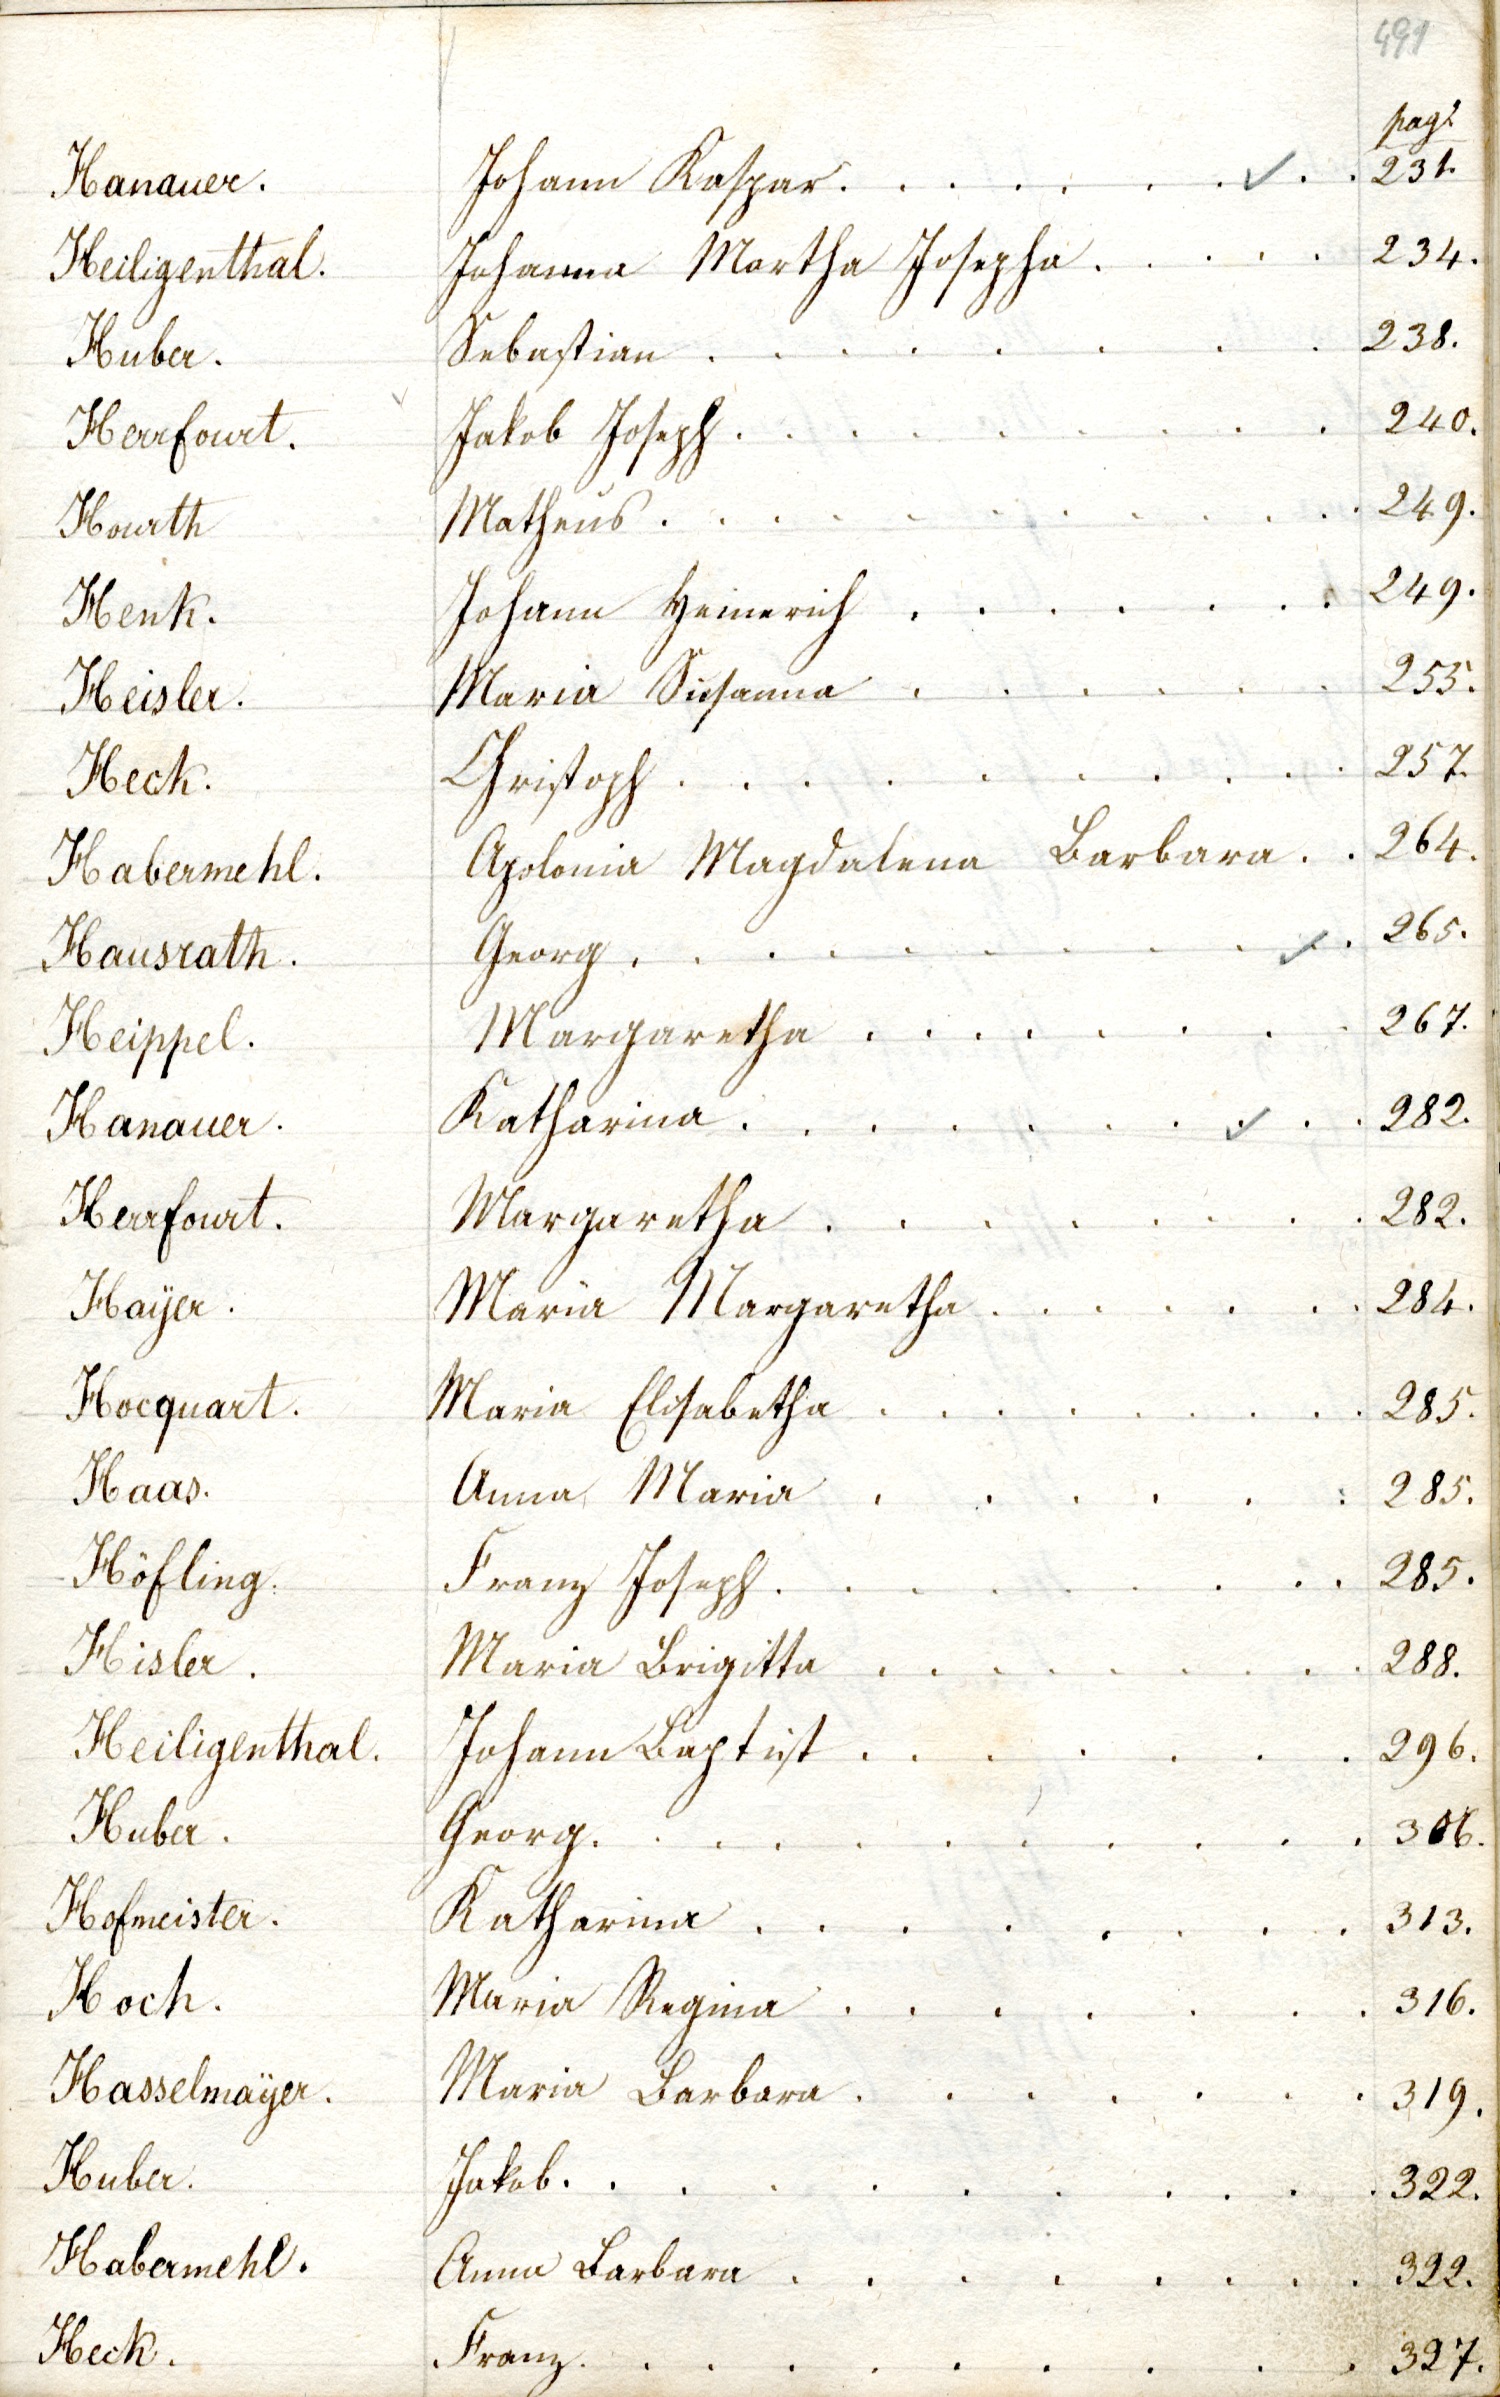 491
pag.
Hanauer. Johann Kaspar. . . . . . . ✓ . . 231.
Heiligenthal. Johanna Martha Josepha . . . . . 234.
Huber. Sebastian . . . . . . . . 238.
Herrfourt. Jakob Joseph . . . . . . . . 240.
Hourth Matheus . . . . . . . . . . 249.
Henk. Johann Heinerich . . . . . . . 249.
Heisler. Maria Susanna . . . . . . 255.
Heck. Christoph . . . . . . . . . 257.
Habermehl. Apolonia Magdalena Barbara . . 264.
Hausrath. Georg . . . . . . . . ✓ . 265.
Heippel. Margaretha . . . . . . . 267.
Hanauer. Katharina . . . . . . . . ✓ . . 282.
Herrfourt. Margaretha . . . . . . . . 282.
Haÿer. Maria Margaretha . . . . . . . 284.
Hocquart. Maria Elisabetha . . . . . . . . 285.
Haas. Anna Maria . . . . . : 285.
Höfling. Franz Joseph . . . . . . . . 285.
Hisler. Maria Brigitta . . . . . . . . 288.
Heiligenthal. Johann Baptist . . . . . . . 296.
Huber. Georg. . . . . . . . . . 306.
Hofmeister. Katharina . . . . . . . . 313.
Hoch. Maria Regina . . . . . . . 316.
Hasselmaÿer. Maria Barbara . . . . . . . 319.
Huber. Jakob. . . . . . . . . . . 322.
Habermehl. Anna Barbara . . . . . . . . 322.
Heck. Franz. . . . . . . . . . 327.